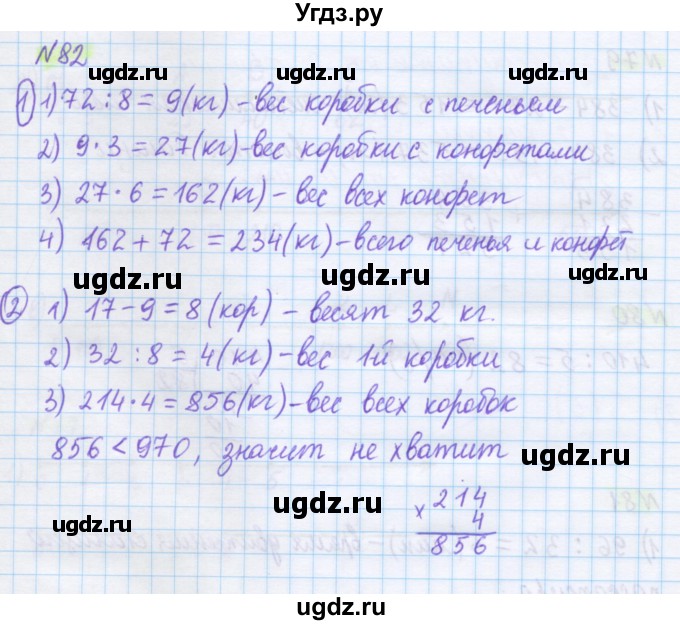 Угдз.ру
N82
ugdz.ru ugdz.ru ugdz.ru
1) 1) 72 : 8 = 9(кг) – вес коробки с печеньем
2) 9 · 3 = 27(кг) – вес коробки с конфетами
ugdz.ru ugdz.ru
3) 27 · 6 = 162(кг) – вес всех конфет
4) 162 + 72 = 234(кг) – всего печенья и конфет
ugdz.ru ugdz.ru
2) 1) 17 – 9 = 8(кор) – весят 32 кг.
ugdz.ru ugdz.ru ugdz.ru
2) 32 : 8 = 4(кг) – вес 1й коробки
3) 214 · 4 = 856(кг) – вес всех коробок
ugdz.ru ugdz.ru
856 < 970, значит не хватит
× 214
4
856
ugdz.ru ugdz.ru ugdz.ru
ugdz.ru